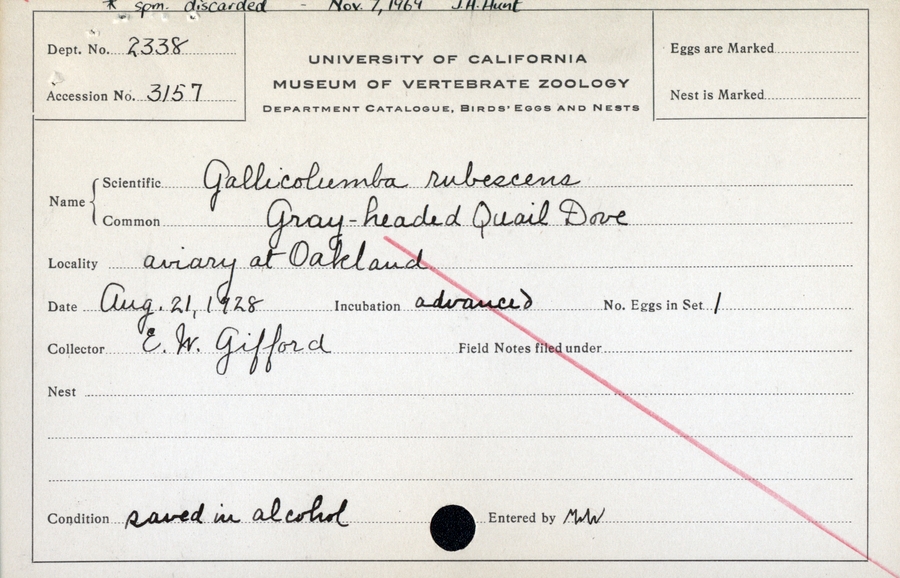 * spm. discarded - Nov. 7, 1969 J.A. Hunt
Dept. No. 2338
Accession No. 3157
UNIVERSITY OF CALIFORNIA
MUSEUM OF VERTEBRATE ZOOLOGY
DEPARTMENT CATALOGUE, BIRDS' EGGS AND NESTS
Eggs are Marked
Nest is Marked
Name
Scientific Gallicolumba rubescens
Common Gray-headed Quail Dove
Locality aviary at Oakland
Date Aug. 21, 1928 Incubation advanced No. Eggs in Set 1
Collector E. W. Gifford Field Notes filed under
Nest
Condition saved in alcohol Entered by